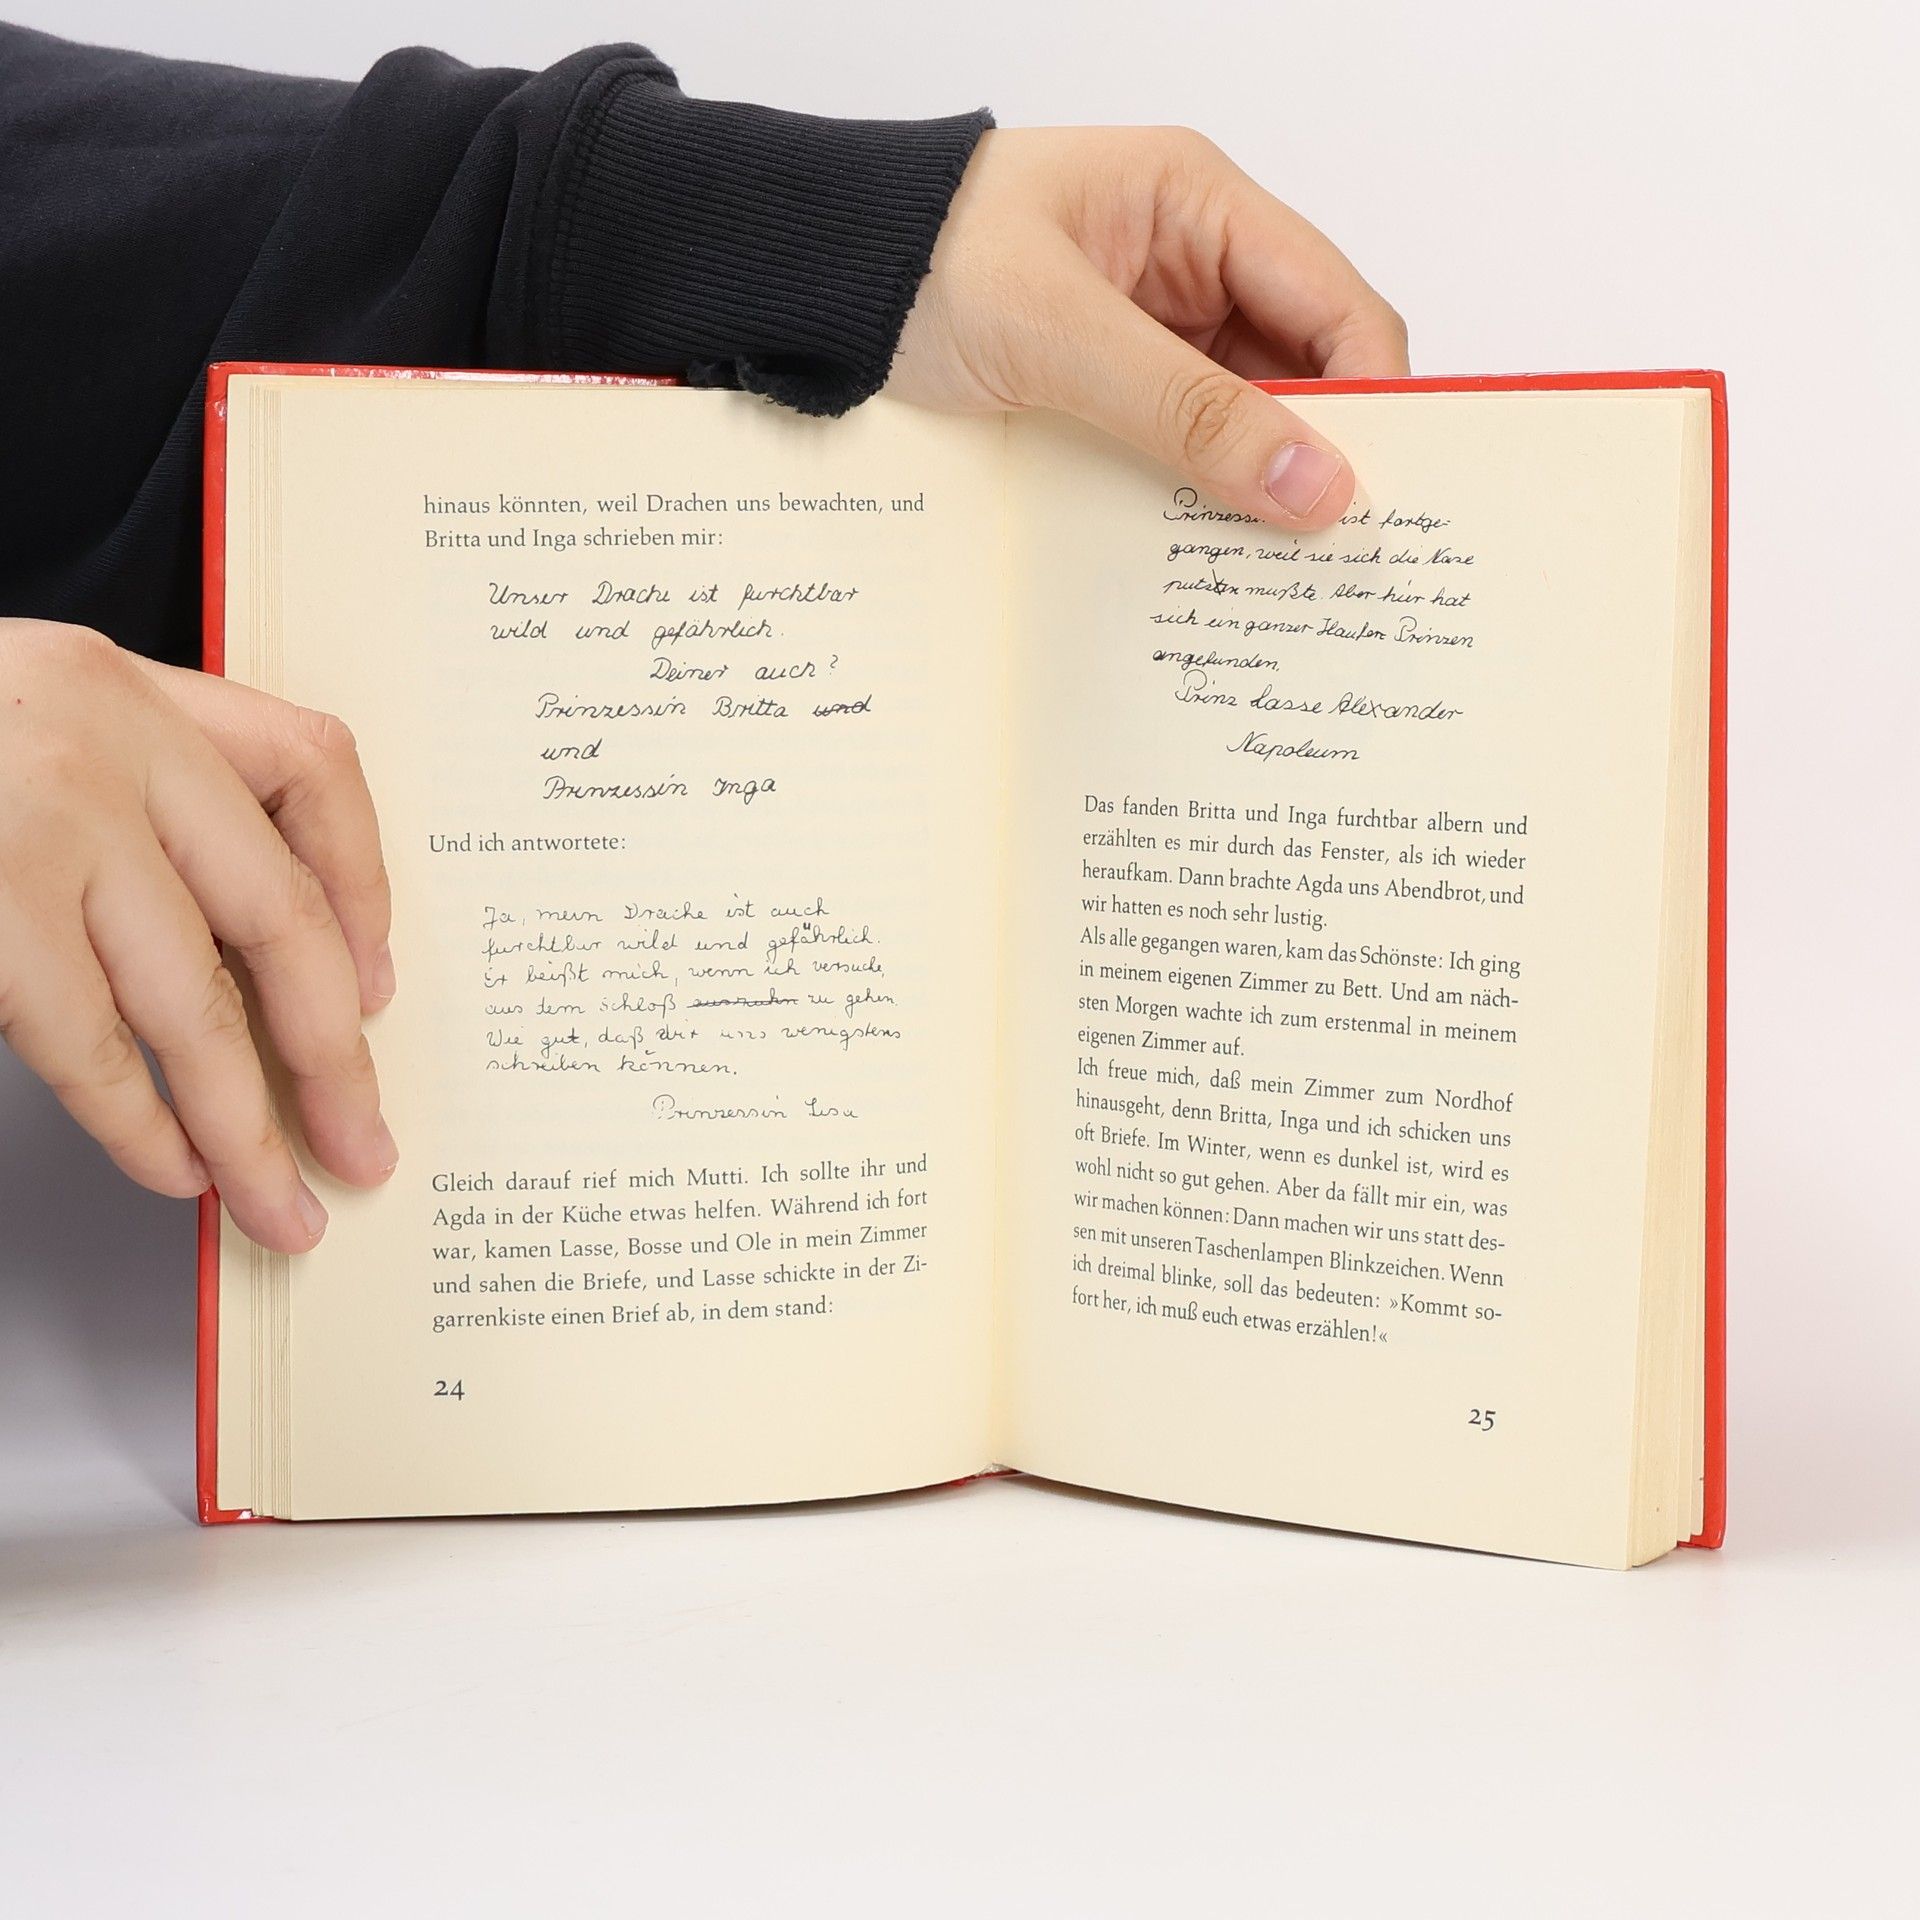 hinaus könnten, weil Drachen uns bewachten, und
Britta und Inga schrieben mir:
Unser Drache ist furchtbar
wild und gefährlich.
Deiner auch?
Prinzessin Britta und
und
Prinzessin Inga
Und ich antwortete:
Ja, mein Drache ist auch
furchtbar wild und gefährlich.
Er beißt mich, wenn ich versuche,
aus dem Schloß zu gehen.
Wie gut, daß wir uns wenigstens
schreiben können.
Prinzessin Lisa
Gleich darauf rief mich Mutti. Ich sollte ihr und
Agda in der Küche etwas helfen. Während ich fort
war, kamen Lasse, Bosse und Ole in mein Zimmer
und sahen die Briefe, und Lasse schickte in der Zi-
garrenkiste einen Brief ab, in dem stand:
24
ist fortge-
gangen, weil sie sich die Nase
mußte. Aber hier hat
sich ein ganzer Haufen Prinzen
angefunden.
Prinz Lasse Alexander
Napoleum
Das fanden Britta und Inga furchtbar albern und
erzählten es mir durch das Fenster, als ich wieder
heraufkam. Dann brachte Agda uns Abendbrot, und
wir hatten es noch sehr lustig.
Als alle gegangen waren, kam das Schönste: Ich ging
in meinem eigenen Zimmer zu Bett. Und am näch-
sten Morgen wachte ich zum erstenmal in meinem
eigenen Zimmer auf.
Ich freue mich, daß mein Zimmer zum Nordhof
hinausgeht, denn Britta, Inga und ich schicken uns
oft Briefe. Im Winter, wenn es dunkel ist, wird es
wohl nicht so gut gehen. Aber da fällt mir ein, was
wir machen können: Dann machen wir uns statt des-
sen mit unseren Taschenlampen Blinkzeichen. Wenn
ich dreimal blinke, soll das bedeuten: »Kommt so-
fort her, ich muß euch etwas erzählen!«
25